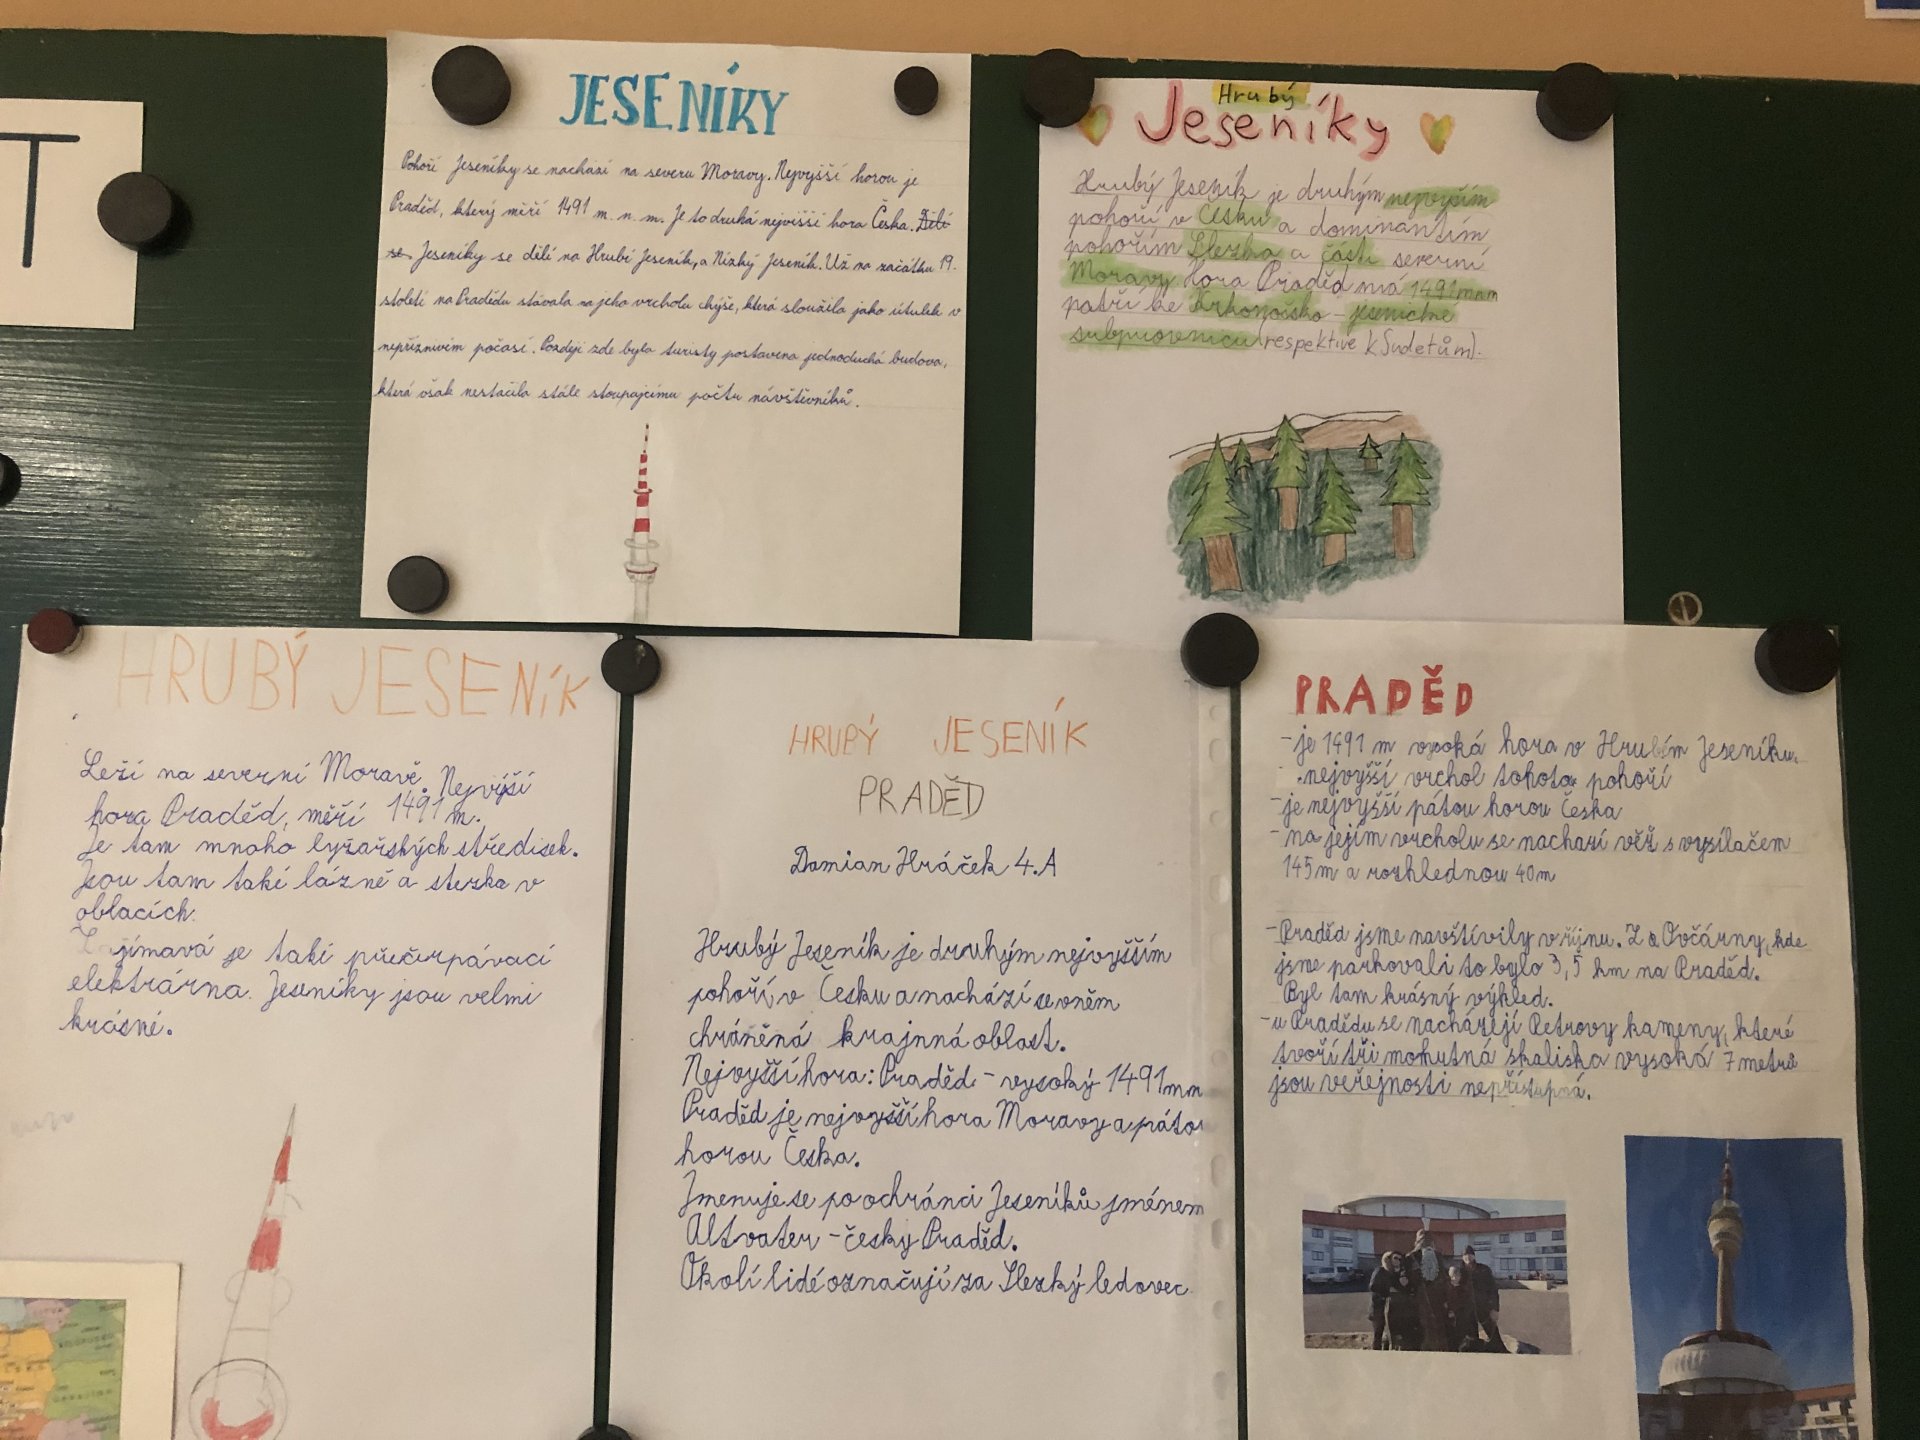 T
JESENÍKY
Pohoří Jeseníky se nachází na severu Moravy. Nejvyšší horou je
Praděd, který měří 1491 m. n. m. Je to druhá nejvišší hora Česka. Dělí
se Jeseníky se dělí na Hrubí Jeseník, a Nízký Jeseník. Už na začátku 19.
století na Pradědu stávala na jeho vrcholu chýše, která sloužila jako útulek v
nepříznivím počasí. Později zde byla turisty postavena jednoduchá budova,
která však nestačila stále stoupajcímu počtu návštěvníků.
Hrubý
Jeseníky
Hrubý Jeseník je druhým nejvyším
pohoří v Česku a dominantím
pohořím Slezka a části severní
Moravy. Hora Praděd má 1491mnm
patří ke krkonošsko - jesenické
subprovincii (respektive k Sudetům).
HRUBÝ JESENÍK
Leží na severní Moravě. Nejvýší
hora Praděd, měří 1491 m.
Je tam mnoho lyžařských středisek.
Jsou tam také lázně a stezka v
oblacích.
Zajímavá je také přečerpávací
elektrárna. Jeseníky jsou velmi
krásné.
HRUBÝ JESENÍK
PRADĚD
Damian Hráček 4.A
Hrubý Jeseník je druhým nejvyšším
pohoří, v Česku a nachází se v něm
chráněná krajnná oblast.
Nejvyšší hora: Praděd - vysoký 1491mnm
Praděd je nejvyšší hora Moravy a pátou
horou Česka.
Jmenuje se po ochránci Jeseníků jménem
Altvater - česky Praděd.
Okolí lidé označují za Slezký ledovec
PRADĚD
- je 1491 m vysoká hora v Hrubém Jeseníku.
- nejvyšší vrchol tohoto pohoří
- je nejvyšší pátou horou Česka
- na jejím vrcholu se nachazí věž s vysílačem
145m a rozhlednou 40m
- Praděd jsme navštívily v říjnu. Z a Ovčárny, kde
jsme parkovali to bylo 3,5 km na Praděd.
Byl tam krásný výhled.
- u Pradědu se nacházejí Petrovy kameny, které
tvoří tři mohutná skaliska vysoká 7 metrů
jsou veřejnosti nepřístupná.